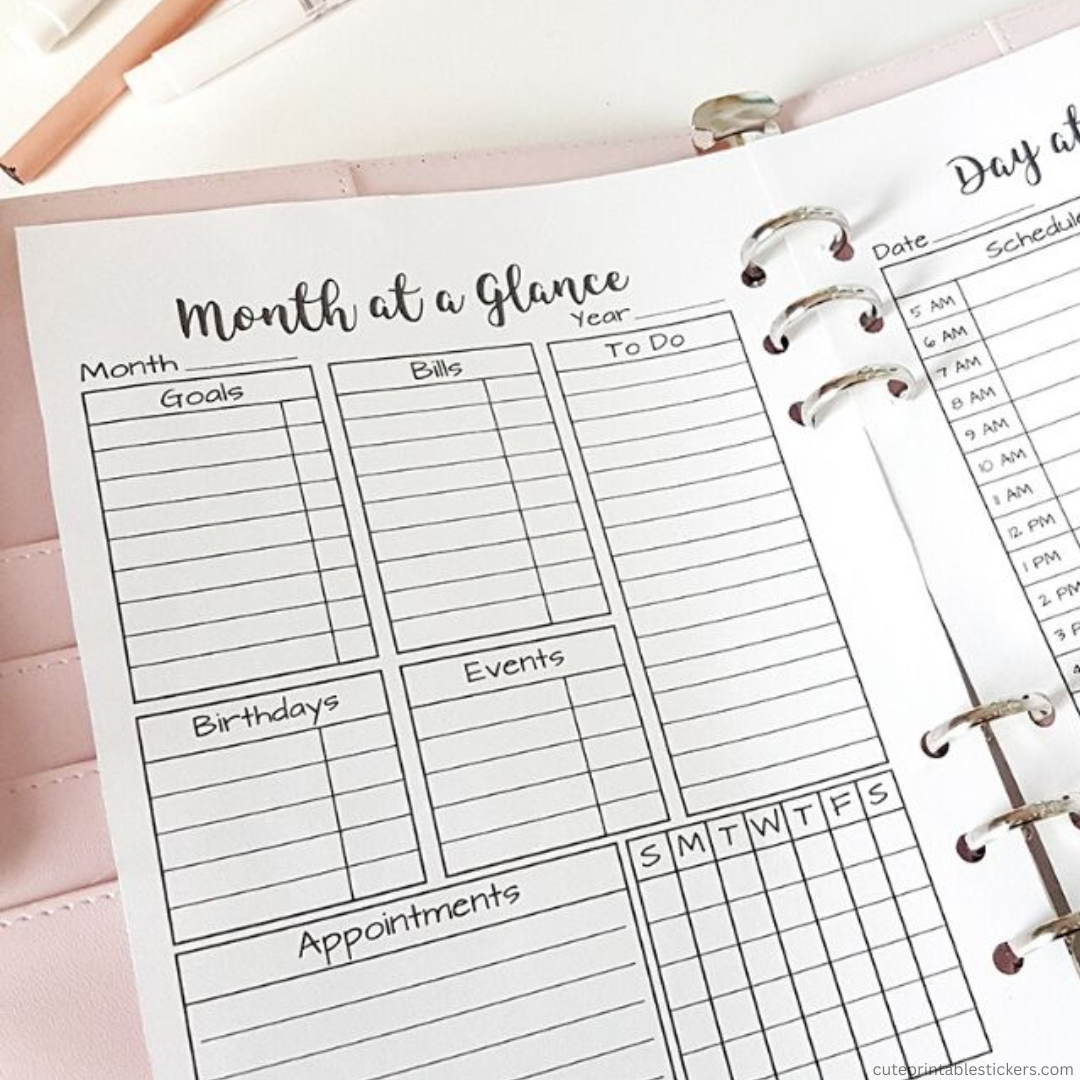 Month at a Glance
Month
Year
Goals
Bills
To Do
Birthdays
Events
S M T W T F S
Appointments
Day at
Date
Schedule
5 AM
6 AM
7 AM
8 AM
9 AM
10 AM
11 AM
12 PM
1 PM
2 PM
3 P
cuteprintablestickers.com